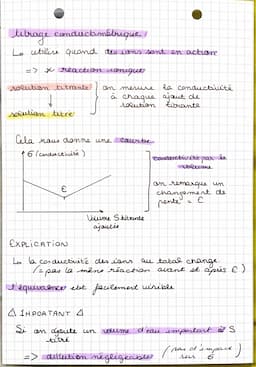 titrage conductimétrique
↳ utilisé quand des ions sont en action
=> réaction ionique
solution titrante
↓
solution titré
on mesure la conductivité
à chaque ajout de
solution titrante
Cela nous donne une courbe
σ (conductivité)
E
Volume S. titrante
ajoutée
conductivité par le
volume
on remarque un
changement de
pente = E
EXPLICATION
↳ la conductivité des ions au total change
(= pas la même réaction avant et après E)
l'équivalence est facilement visible
⚠ IMPORTANT ⚠
Si on ajoute un volume d'eau important à S
titré
=> dilution négligeable (pas d'impact
sur σ)